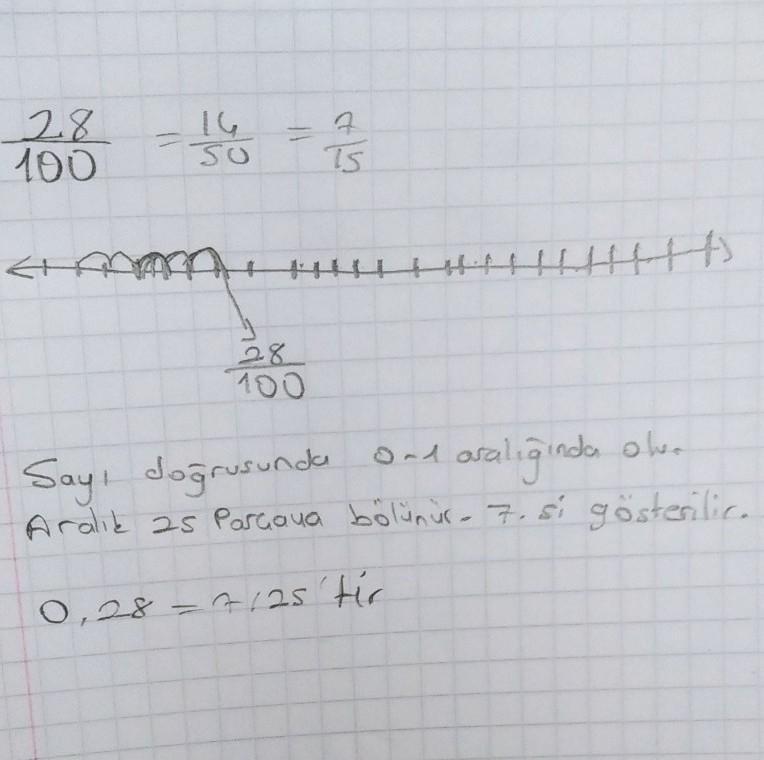 28/100 = 14/50 = 7/15
28/100
Sayı doğrusunda 0-1 aralığında olur.
Aralık 25 Parçaya bölünür. 7. si gösterilir.
0,28 = 7/25'tir